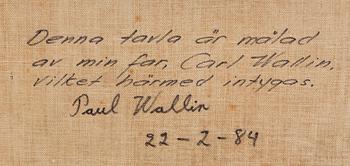 Denna tavla är målad
av min far, Carl Wallin,
vilket härmed intygas.
Paul Wallin
22-2-84